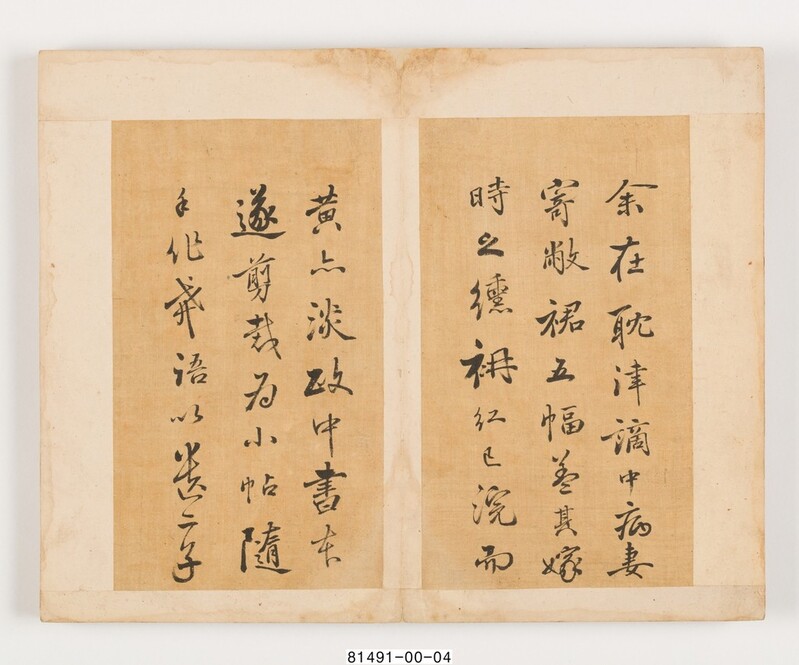 余在耽津謫中病妻
寄敝裙五幅蓋其嫁
時之纁袡紅已浣而
黃亦淡政中書本
遂剪裁為小帖隨
手作戒語以遺二子
81491-00-04